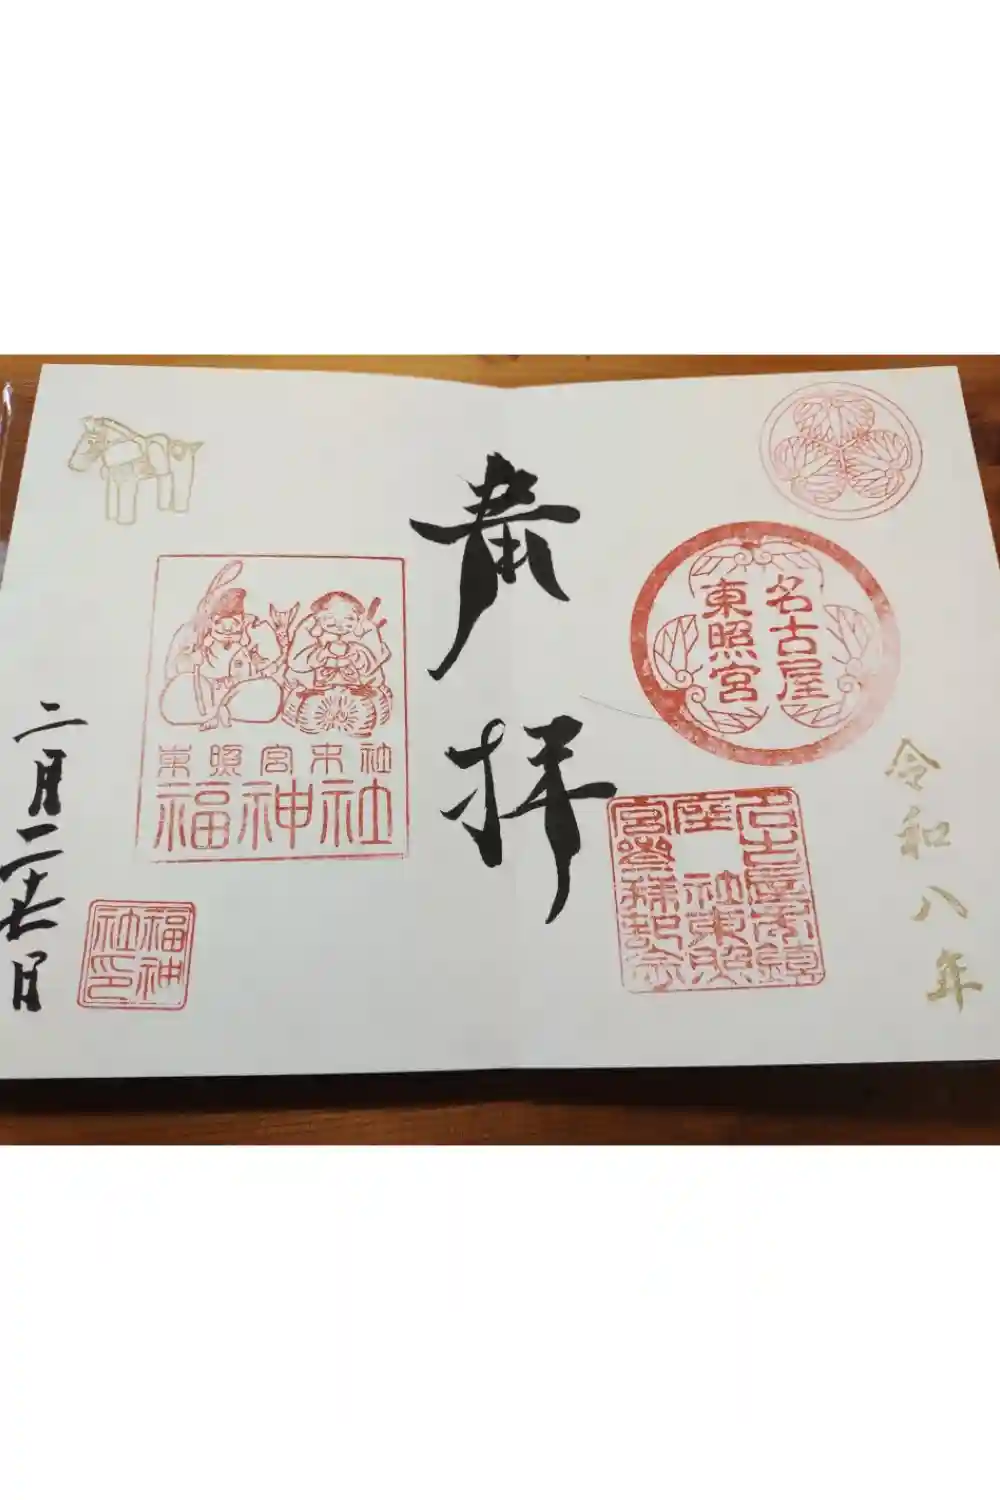 令和八年
名古屋
東照宮
名古屋市鎮
座 社東照
宮參拜記念
奉拝
東照宮末社
福神社
福神
社印
二月二十七日